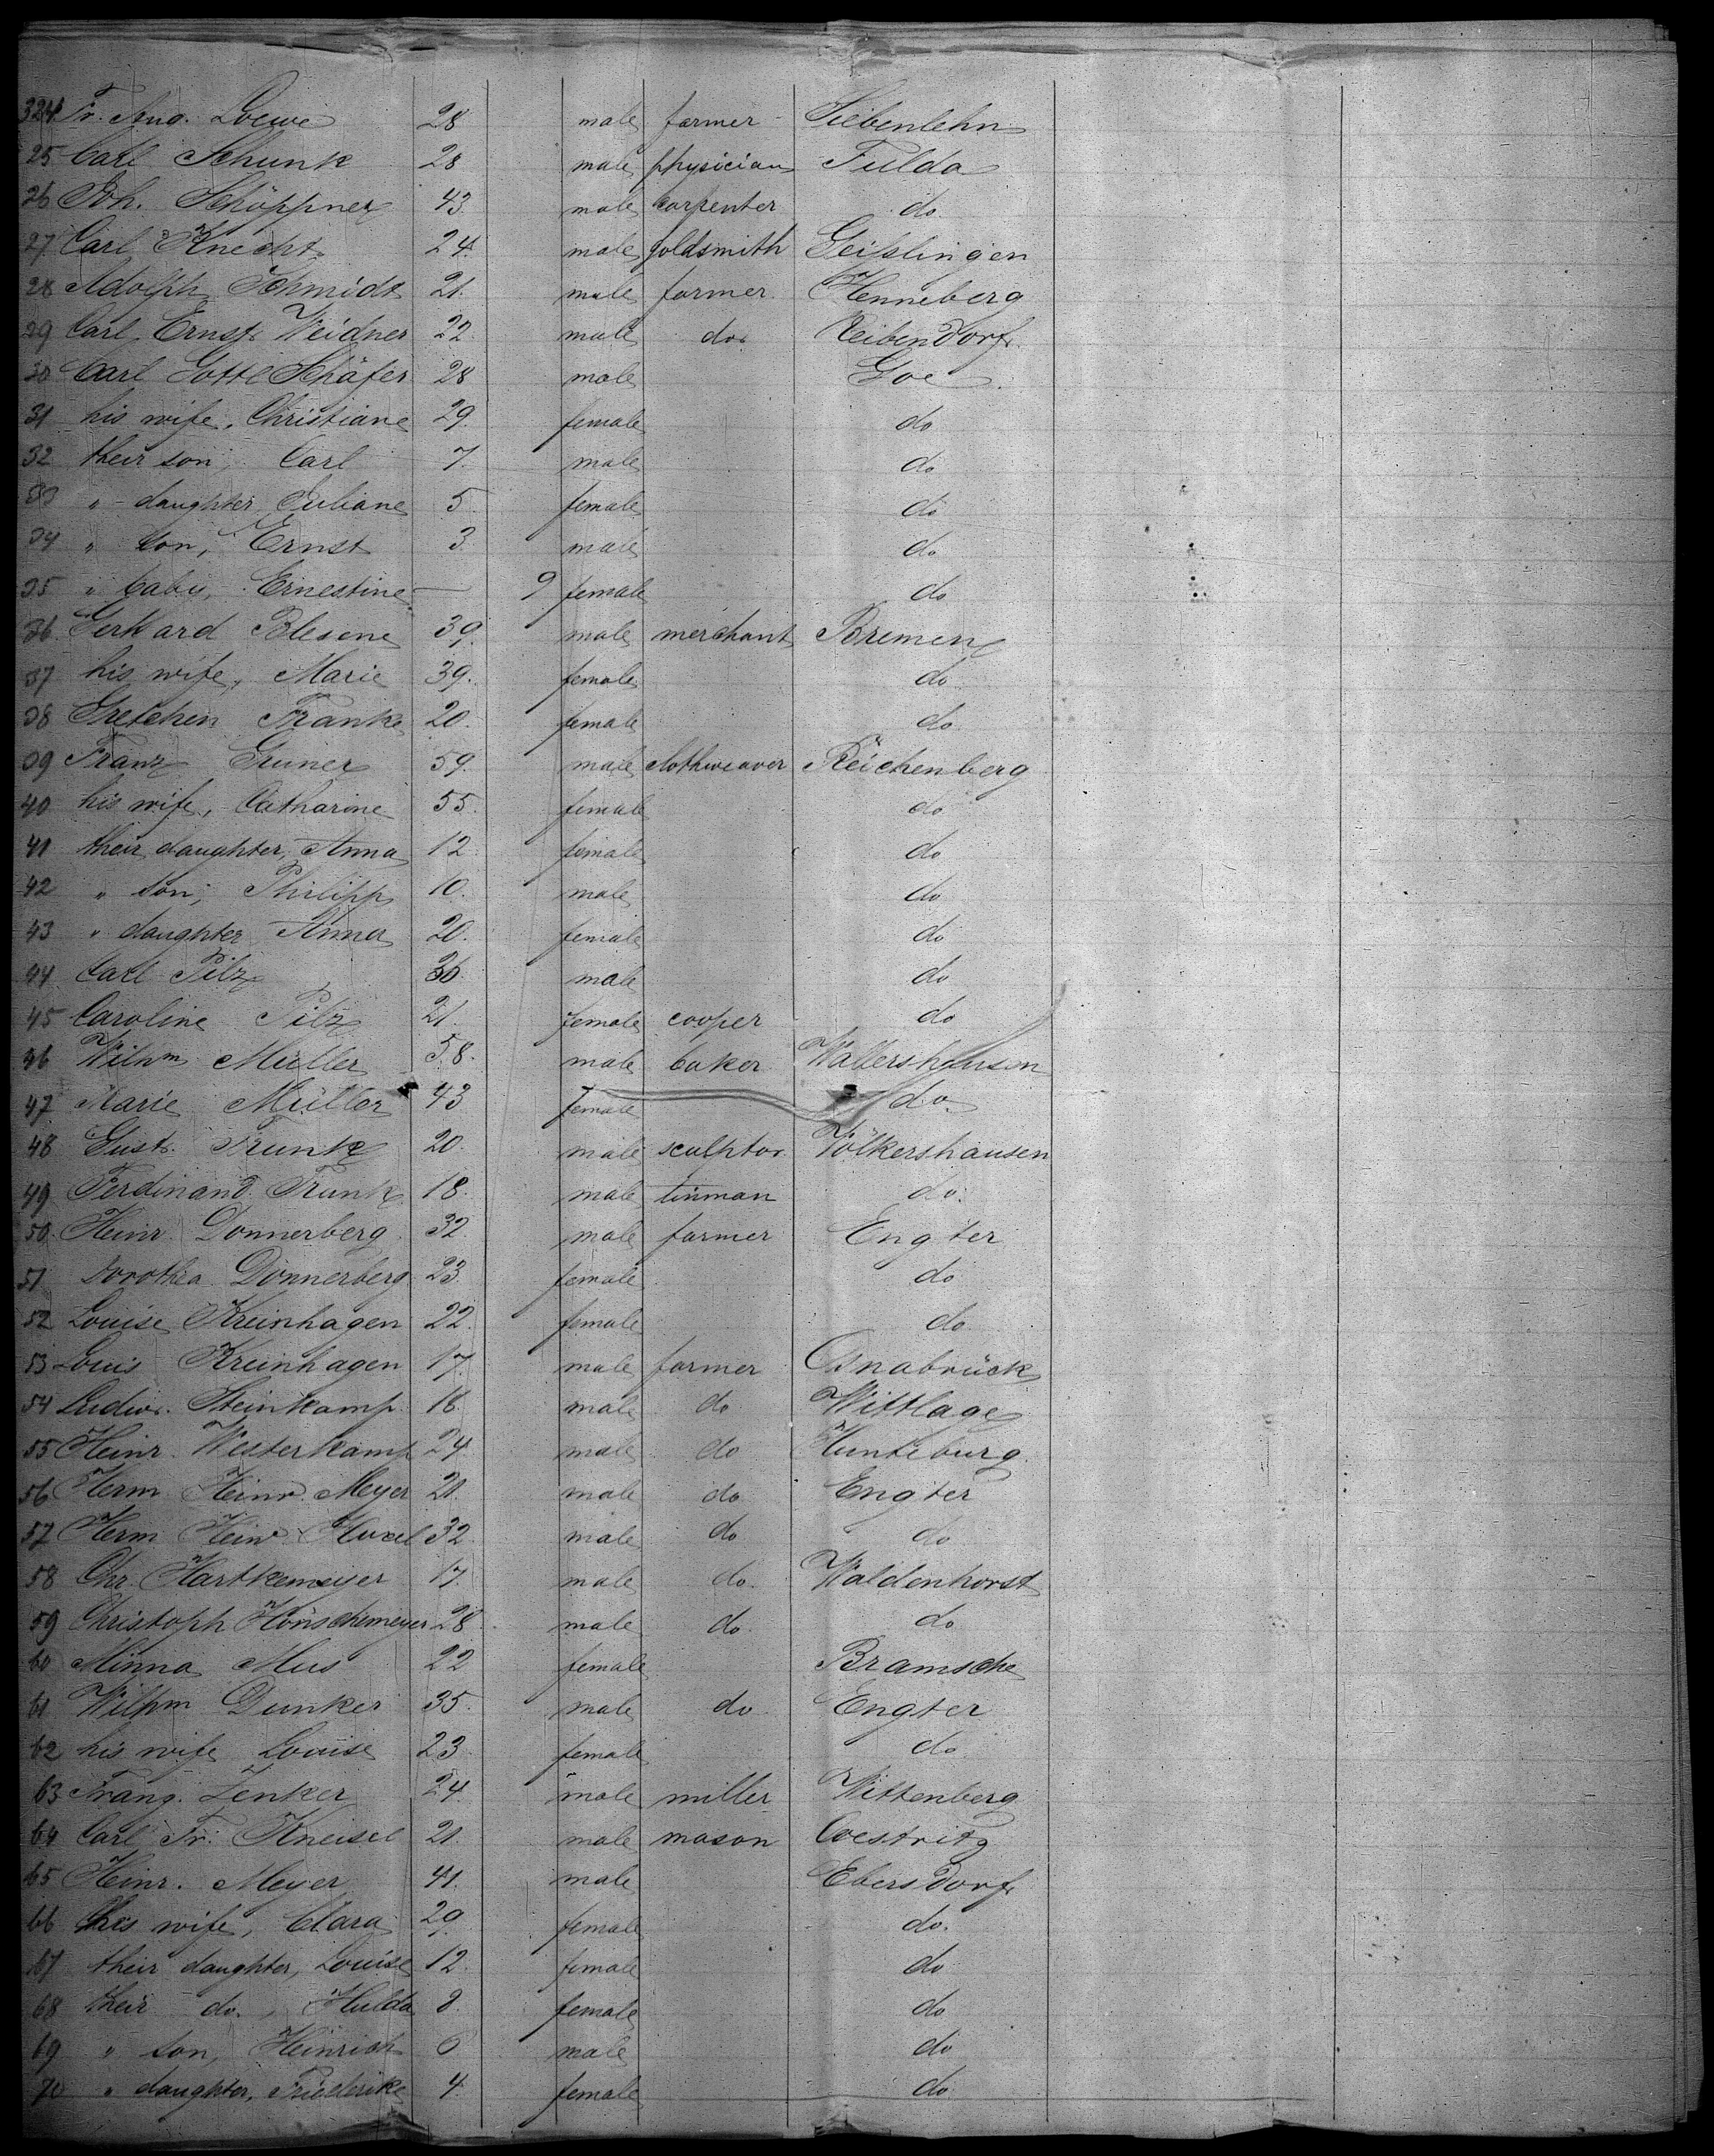 324 Fr. Aug. Loewe 28 male farmer Siebenlehn
25 Carl Schunk 28 male physician Fulda
26 Joh. Schöppner 43 male carpenter do
27 Carl Knecht 24 male goldsmith Geißlingen
28 Adolph Schmidt 21 male farmer Henneberg
29 Carl Ernst Weidner 22 male do. Reibendorf
30 Carl Gottl Schäfer 28 male Goe
31 his wife, Christiane 29 female do
32 their son, Carl 7 male do
33 " daughter, Juliane 5 female do
34 " son, Ernst 3 male do
35 " baby, Ernestine — 9 female do
36 Gerhard Blesene 39 male merchant Bremen
37 his wife, Marie 39 female do
38 Gretchen Franke 20 female do
39 Franz Gruner 59 male clothweaver Reichenberg
40 his wife, Catharine 55 female do
41 their daughter, Anna 12 female do
42 " son, Philipp 10 male do
43 " daughter Anna 20 female do
44 Carl Pilz 36 male do
45 Caroline Pilz 21 female cooper do
46 Wilhm Müller 58 male baker Waltershausen
47 Marie Müller 43 female do
48 Gust. Trunk 20 male sculptor Völkershausen
49 Ferdinand Trunk 18 male tinman do.
50 Heinr. Donnerberg 32 male farmer Engter
51 Dorothea Donnerberg 23 female do
52 Louise Kreinhagen 22 female do
53 Louis Kreinhagen 17 male farmer Osnabrück
54 Ludw. Steinkamp 18 male do Wittlage
55 Heinr. Westerkamp 24 male do Hunteburg
56 Herm Heinr. Meyer 21 male do Engter
57 Herm Heinr 32 male do do
58 Chr. Hartkemeyer 17 male do. Waldenhorst
59 Christoph Hönschemeyer 28 male do. do
60 Minna Mus 22 female Bramsche
61 Wilhm Dunker 35 male do Engter
62 his wife Louise 23 female do
63 Franz. Zenker 24 male miller Wittenberg
64 Carl Fr. Kneisel 21 male mason Coestritz
65 Heinr. Meyer 41 male Ebersdorf
66 his wife, Clara 29 female do.
67 their daughter, Louise 12 female do
68 their do., Hulda 8 female do
69 " son, Heinrich 6 male do
70 " daughter, Friederike 4 female do